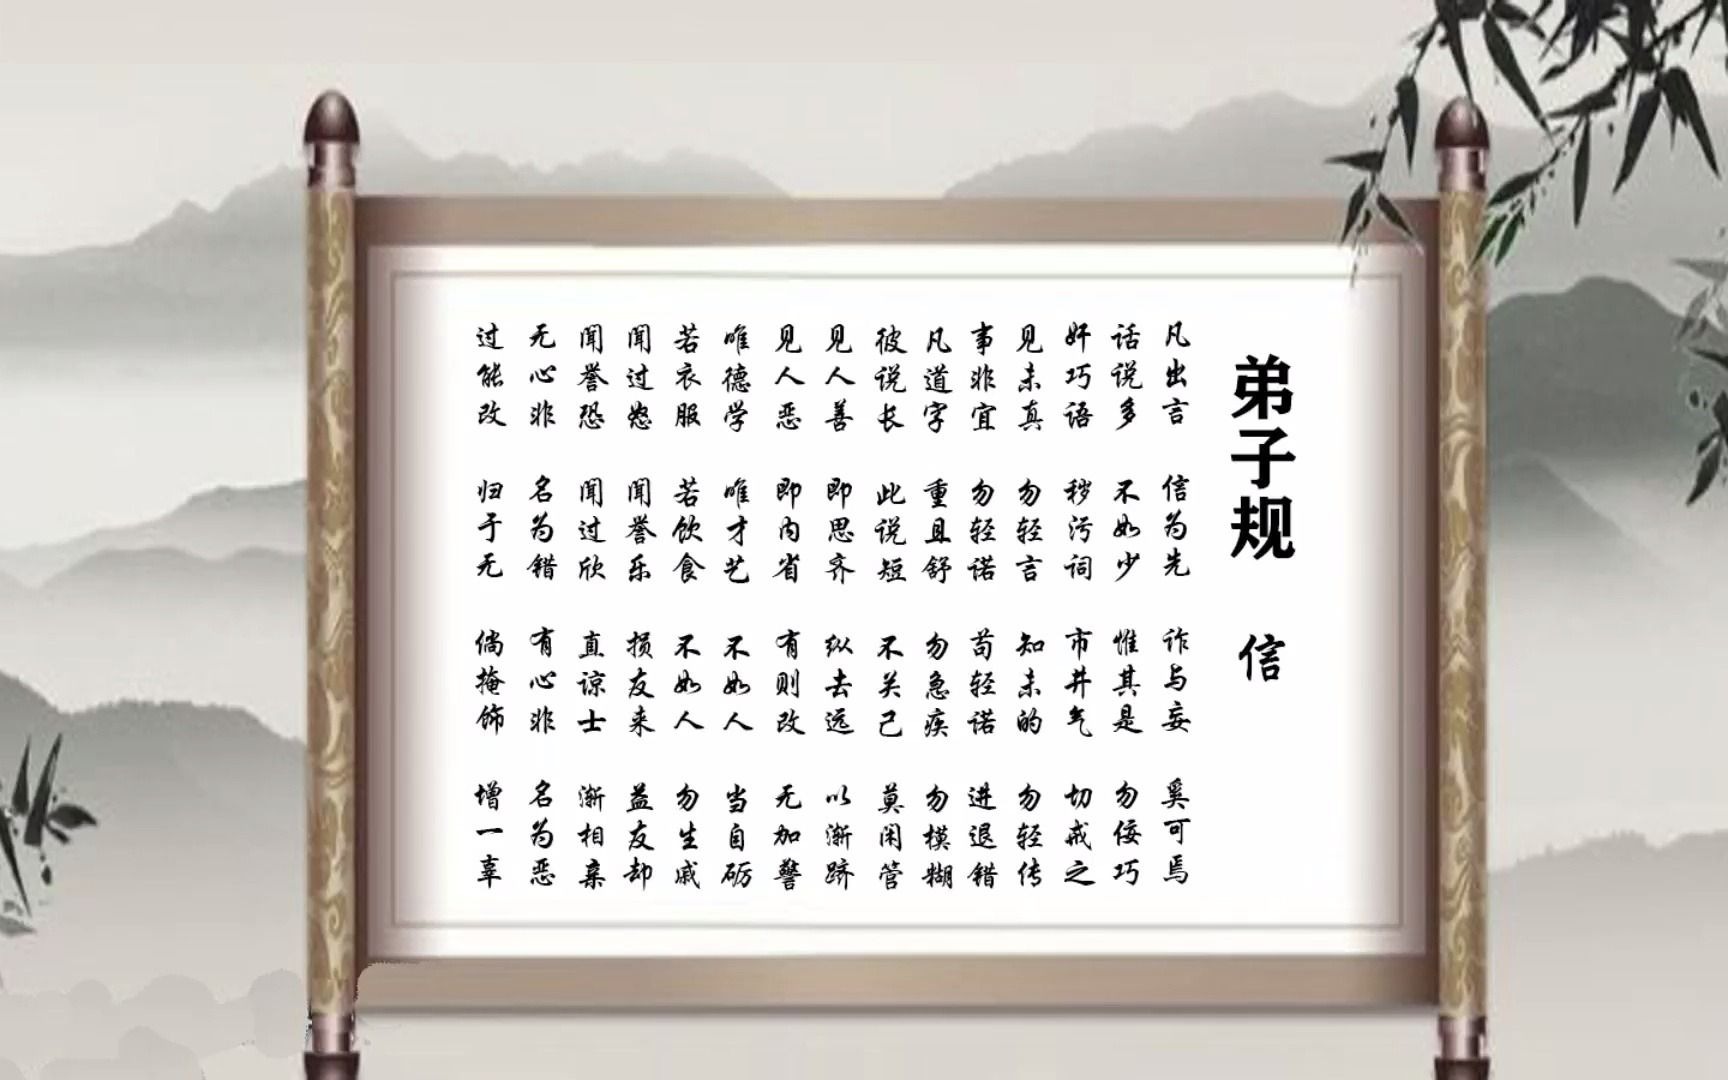 弟子规 信
凡出言 信为先 诈与妄 奚可焉
话说多 不如少 惟其是 勿佞巧
奸巧语 秽污词 市井气 切戒之
见未真 勿轻言 知未的 勿轻传
事非宜 勿轻诺 苟轻诺 进退错
凡道字 重且舒 勿急疾 勿模糊
彼说长 此说短 不关己 莫闲管
见人善 即思齐 纵去远 以渐跻
见人恶 即内省 有则改 无加警
唯德学 唯才艺 不如人 当自砺
若衣服 若饮食 不如人 勿生戚
闻过怒 闻誉乐 损友来 益友却
闻誉恐 闻过欣 直谅士 渐相亲
无心非 名为错 有心非 名为恶
过能改 归于无 倘掩饰 增一辜